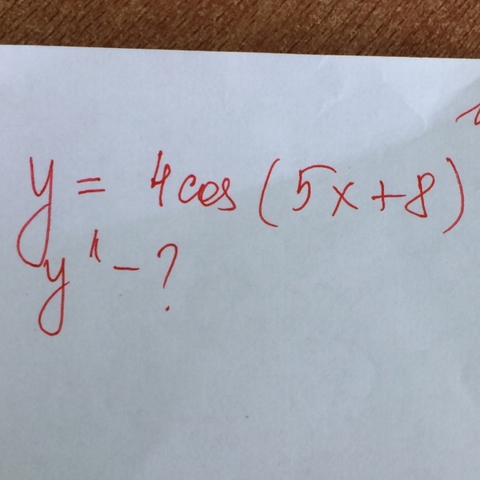 y = 4cos(5x+8)
y'' - ?